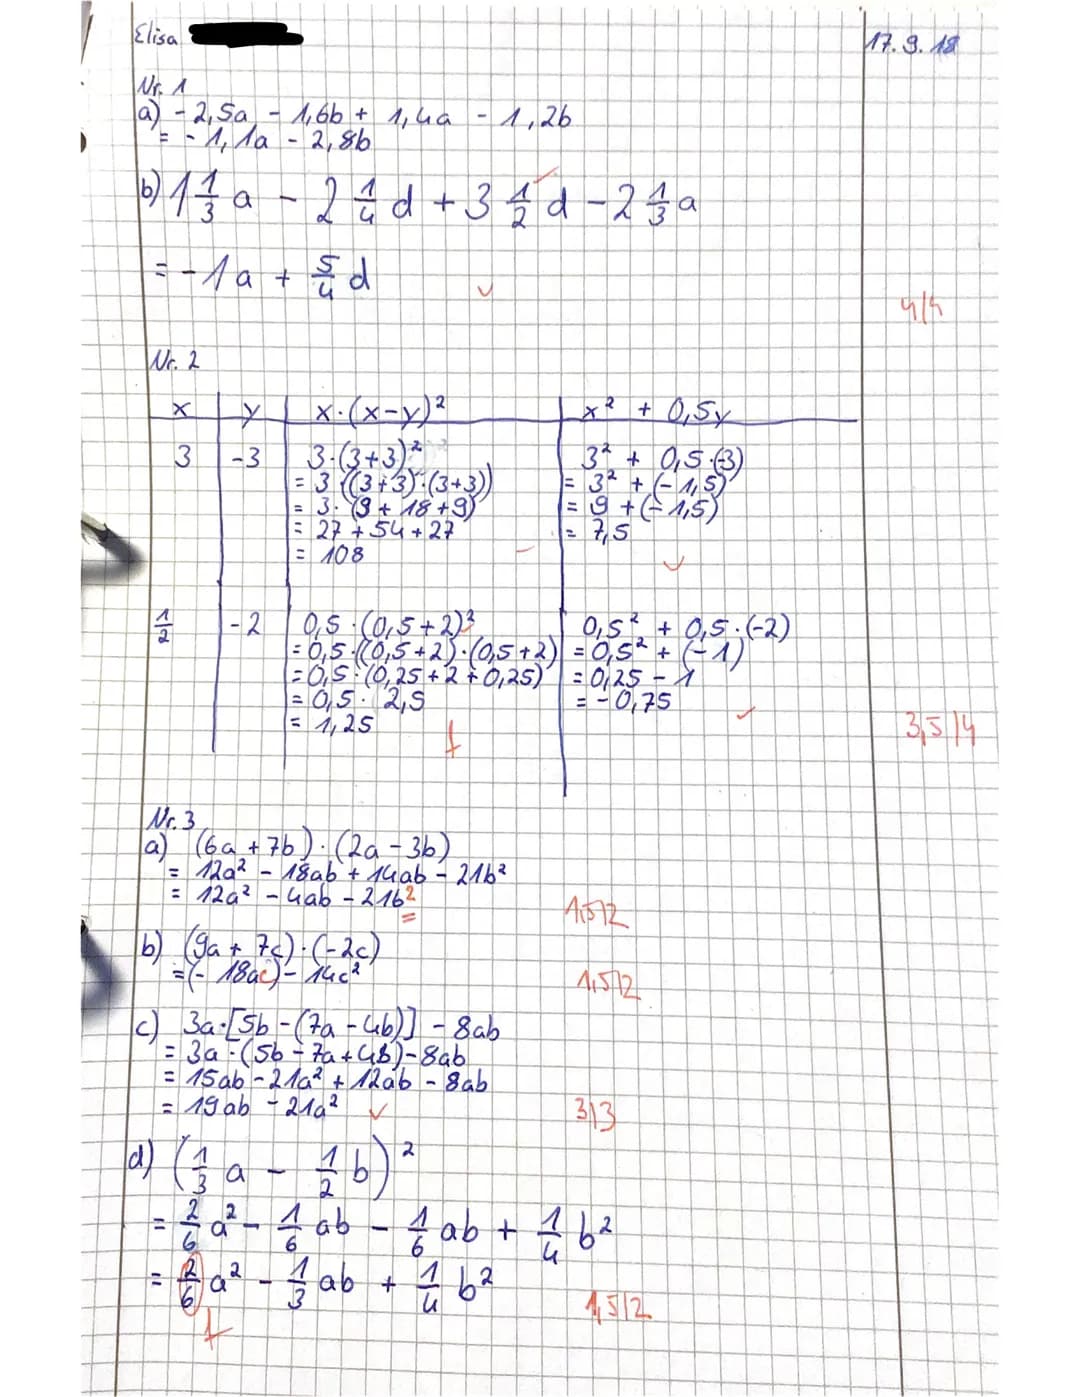 Elisa
17.9.18
Nr. 1
a) -2,5a - 1,6b + 1,4a - 1,2b
= -1,1a - 2,8b
b) 1 1/3 a - 2 1/4 d + 3 1/2 d - 2 1/3 a
= -1a + 5/4 d
4/4
Nr. 2
x y x·(x-y)² x² + 0,5y
3 -3 3·(3+3)² 3² + 0,5·(-3)
= 3·((3+3)·(3+3)) = 3² + (-1,5)
= 3·(9 + 18 + 9) = 9 + (-1,5)
= 27 + 54 + 27 = 7,5
= 108
1/2 -2 0,5·(0,5+2)² 0,5² + 0,5·(-2)
= 0,5·((0,5+2)·(0,5+2)) = 0,5² + (-1)
= 0,5·(0,25 + 2 + 0,25) = 0,25 - 1
= 0,5· 2,5 = -0,75
= 1,25 f
3,5/4
Nr. 3
a) (6a + 7b)·(2a - 3b)
= 12a² - 18ab + 14ab - 21b²
= 12a² - 4ab - 21b²
1,5/2
b) (9a + 7c)·(-2c)
= (-18ac) - 14c²
1,5/2
c) 3a·[5b - (7a - 4b)] - 8ab
= 3a·(5b - 7a + 4b) - 8ab
= 15ab - 21a² + 12ab - 8ab
= 19ab - 21a²
3/3
d) (1/3 a - 1/2 b)²
= 2/6 a² - 1/6 ab - 1/6 ab + 1/4 b²
= 2/6 a² - 1/3 ab + 1/4 b²
1,5/2
f